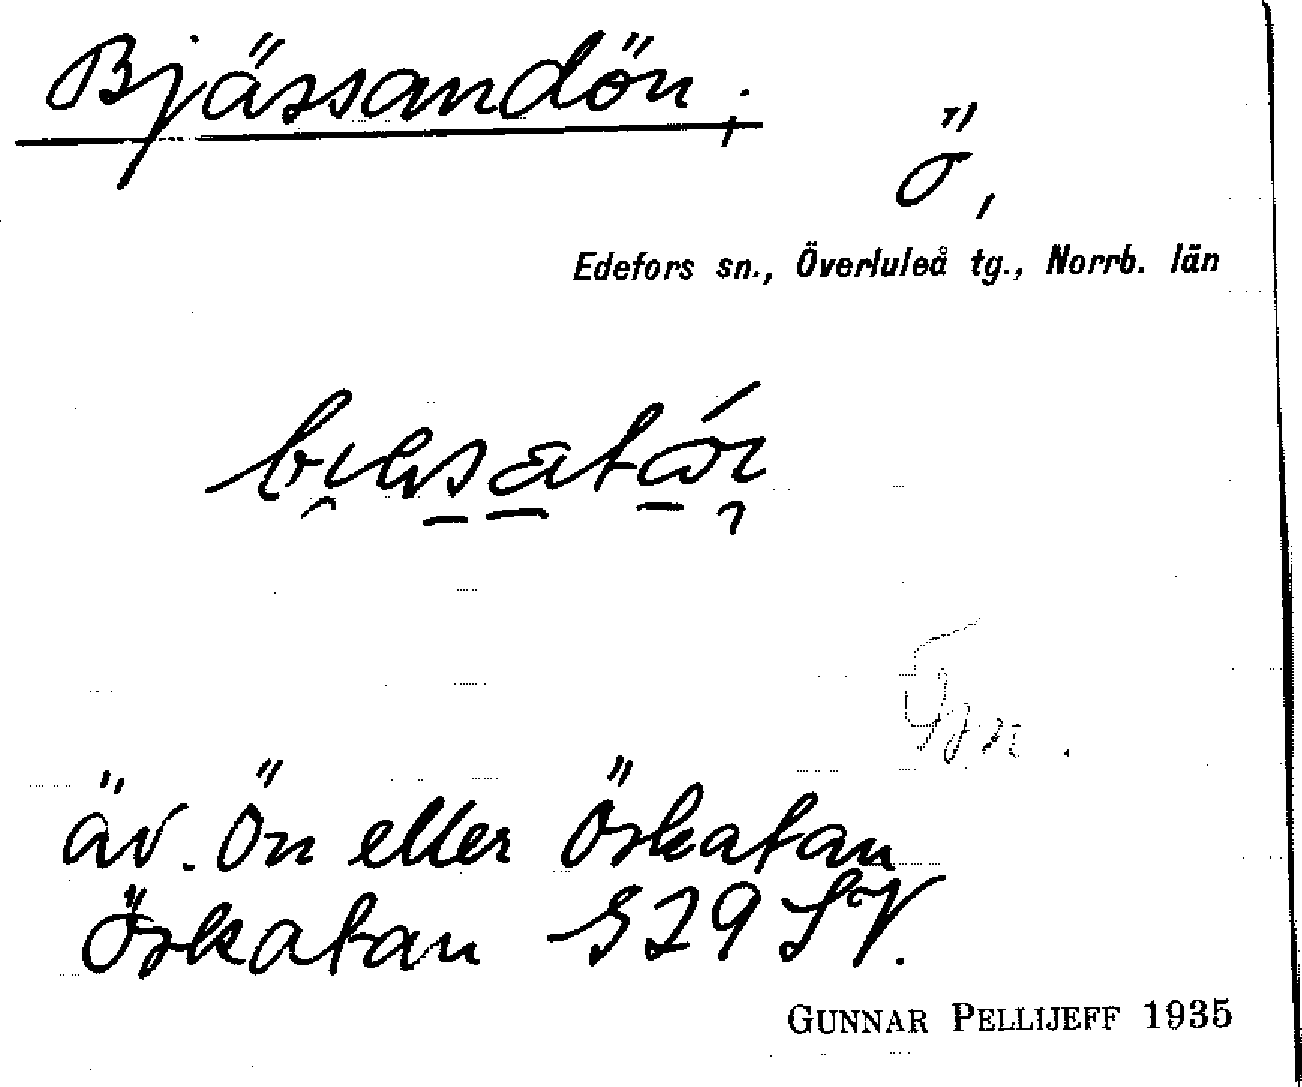 Bjässandön,
ö,
Edefors sn., Överluleå tg., Norrb. län
äv. Ön eller Öskatan
Öskatan S29 SV.
GUNNAR PELLIJEFF 1935